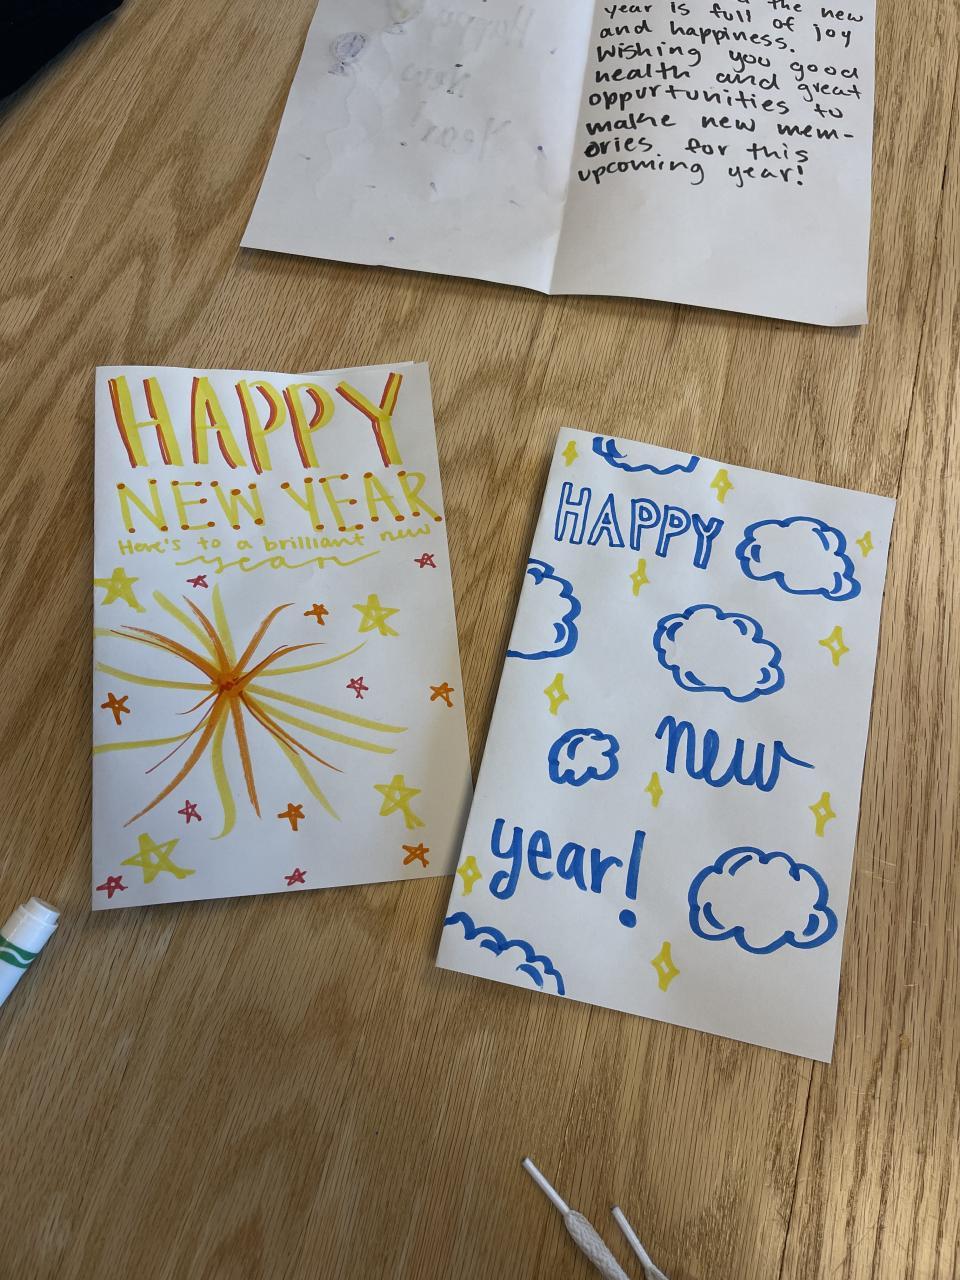 the new
year is full of joy
and happiness.
Wishing you good
health and great
oppurtunities to
make new mem-
ories for this
upcoming year!
Happy
New
Year
HAPPY
NEW YEAR
Here's to a brilliant new
year
HAPPY
new
year!